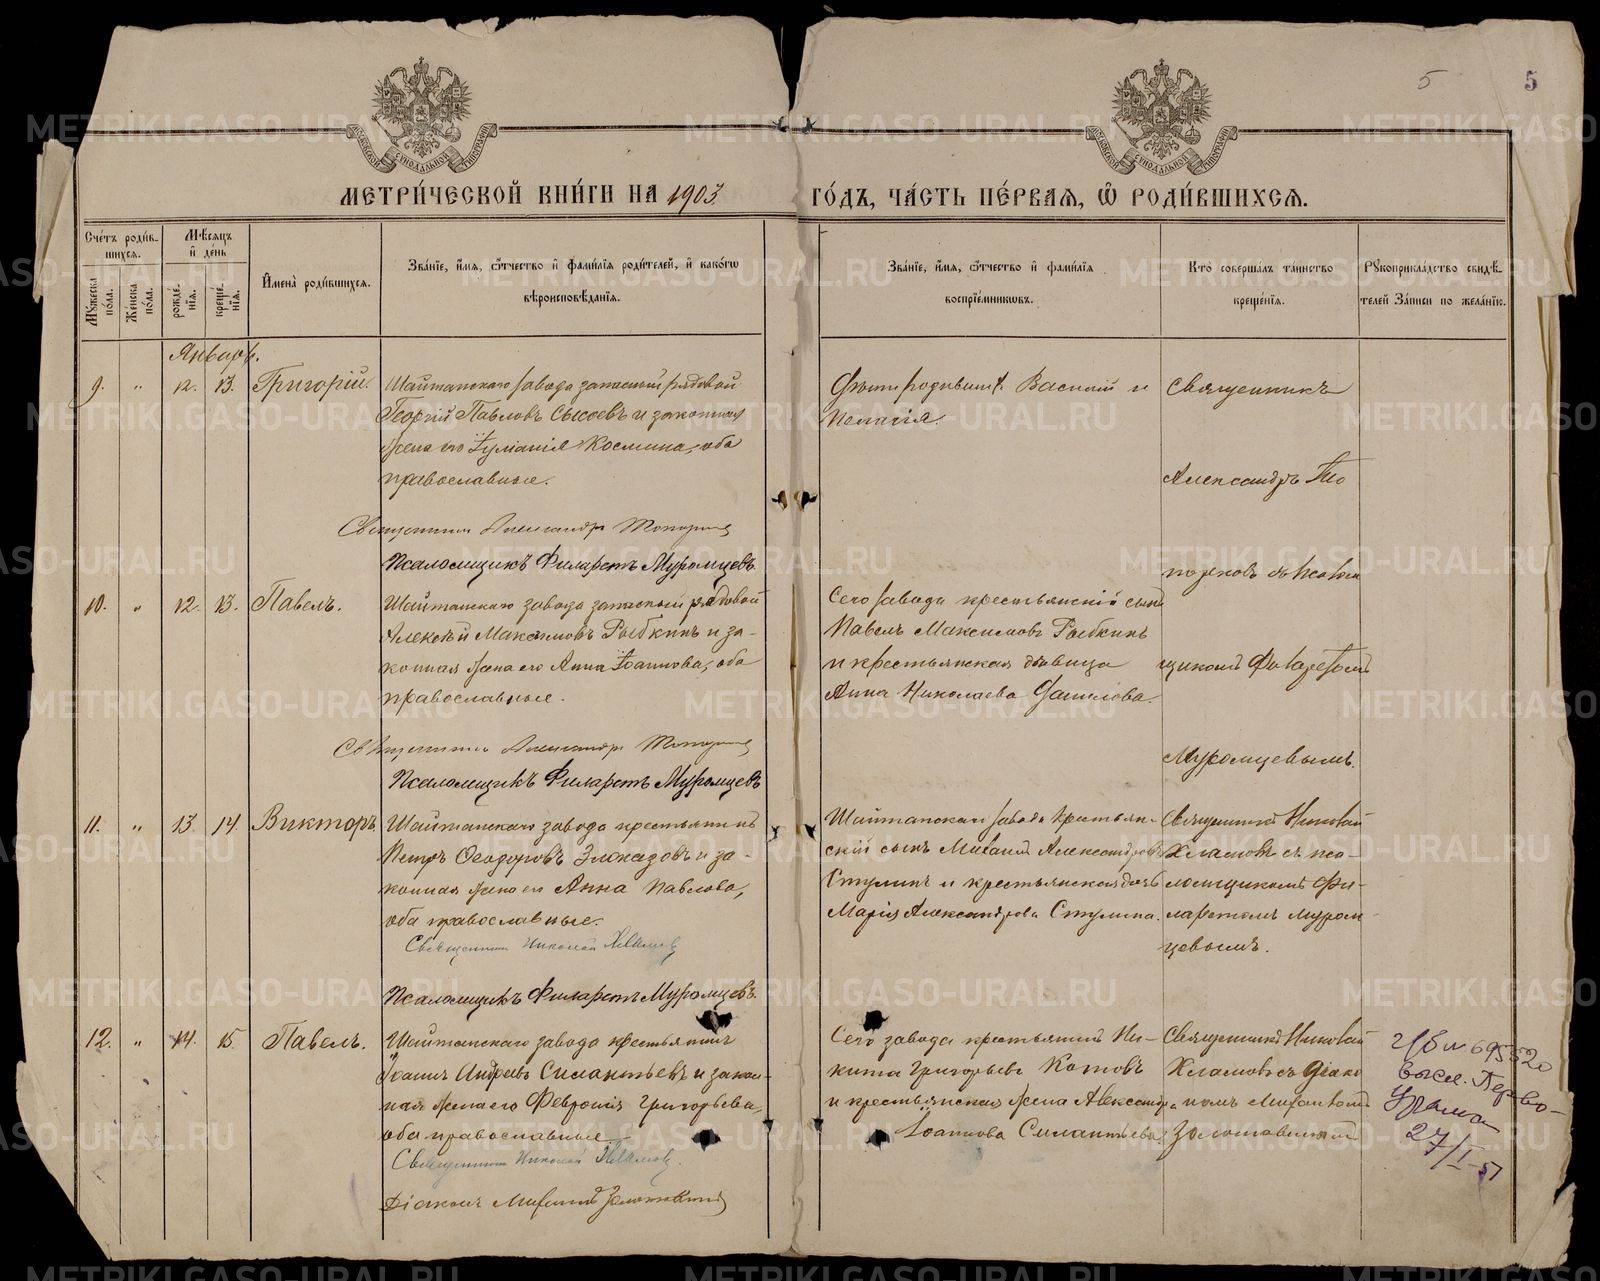 5
5
МОСКОВСКОЙ СѴНОДАЛЬНОЙ ТИПОГРАФІИ
МОСКОВСКОЙ СѴНОДАЛЬНОЙ ТИПОГРАФІИ
МЕТРИ́ЧЕСКОЙ КНИ́ГИ НА 1903
ГО́ДЪ, ЧА́СТЬ ПЕ́РВАЯ, Ѽ РОДИ́ВШИХСЯ.
Сче́тъ роди́в-
шихся.
Мѣ́сяцъ
и҆ де́нь
Мꙋ́жеска по́ла.
Же́нска по́ла.
рожде́нїѧ.
креще́нїѧ.
И҆мена̀ роди́вшихся.
Зва́нїе, и҆́мя, ѻ҆́тчество и҆ фами́лїя роди́телей, и҆ како́гѡ
вѣроисповѣ́данїя.
Зва́нїе, и҆́мя, ѻ҆́тчество и҆ фами́лїя
воспрїе́мникѡвъ.
Кто̀ соверша́лъ та́инство
креще́нїя.
Рꙋкоприкла́дство свидѣ́-
телей За́писи по жела́нїю.
Январь.
9. " 12. 13. Григорій. Шайтанскаго завода запасный рядовой
Георгій Павловъ Сысоевъ и законная
жена его Іуліанія Космина, оба
православные.
Священникъ Александръ Топорковъ
Псаломщикъ Филаретъ Муромцевъ
Василій и
Пелагія.
Священникъ
Александръ То
порковъ съ псалом
щикомъ Филаретомъ
Муромцевымъ.
10. " 12. 13. Павелъ. Шайтанскаго завода запасный рядовой
Алексѣй Максимовъ Рыбкинъ и за-
конная жена его Анна Іоаннова, оба
православные.
Священникъ Александръ Топорковъ
Псаломщикъ Филаретъ Муромцевъ
Сего завода крестьянскій сынъ
Павелъ Максимовъ Рыбкинъ
и крестьянская дѣвица
Анна Николаева Данилова.
11. " 13. 14. Викторъ. Шайтанскаго завода крестьянинъ
Петръ Ѳеодоровъ Злоказовъ и за-
конная жена его Анна Павлова,
оба православные.
Священникъ Николай Хламовъ
Псаломщикъ Филаретъ Муромцевъ.
Шайтанскаго завода крестьян-
скій сынъ Михаилъ Александровъ
Стулинъ и крестьянская дочь
Марія Александрова Стулина.
Священникъ Николай
Хламовъ съ пса-
ломщикомъ Фи-
ларетомъ Муром-
цевымъ.
12. " 14. 15. Павелъ. Шайтанскаго завода крестьянинъ
Іоаннъ Андреевъ Силантьевъ и закон-
ная жена его Февронія Григорьева,
оба православные.
Священникъ Николай Хламовъ.
Діаконъ Михаилъ Золотавинъ
Сего завода крестьянинъ Ни-
кита Григорьевъ Котовъ
и крестьянская жена Александра
Іоаннова Силантьева.
Священникъ Николай
Хламовъ съ діако
номъ Михаиломъ
Золотавинымъ
695520
27/I-51
METRIKI.GASO-URAL.RU